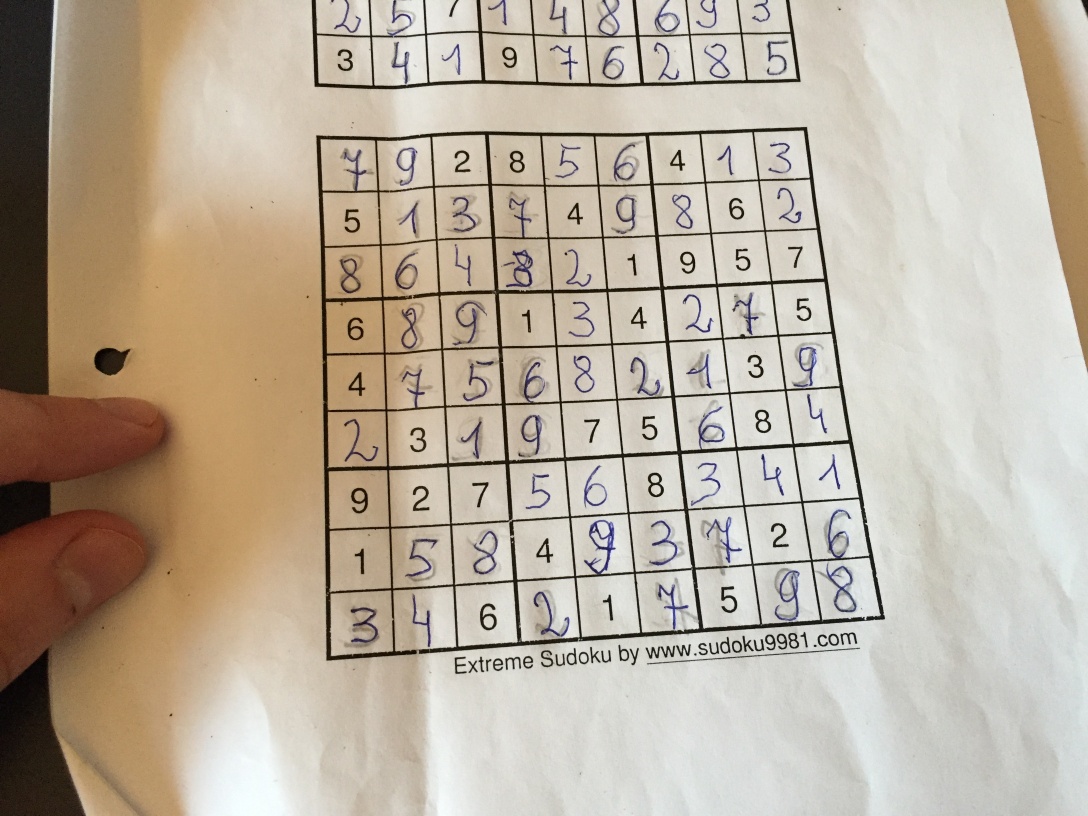 2 5 7 1 4 8 6 9 3
3 4 1 9 7 6 2 8 5
7 9 2 8 5 6 4 1 3
5 1 3 7 4 9 8 6 2
8 6 4 3 2 1 9 5 7
6 8 9 1 3 4 2 7 5
4 7 5 6 8 2 1 3 9
2 3 1 9 7 5 6 8 4
9 2 7 5 6 8 3 4 1
1 5 8 4 9 3 7 2 6
3 4 6 2 1 7 5 9 8
Extreme Sudoku by www.sudoku9981.com